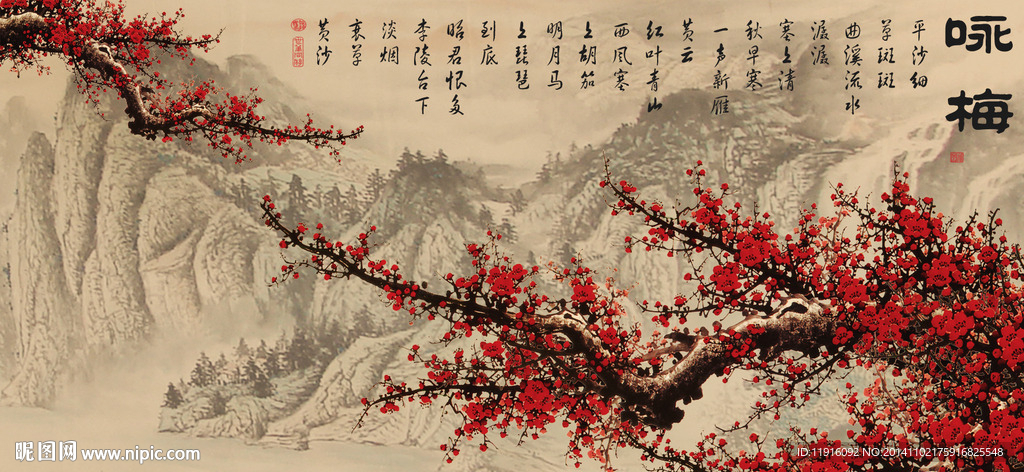 咏梅
平沙细
草斑斑
曲溪流水
潺潺
塞上清
秋早寒
一声新雁
黄云
红叶青山
西风塞
上胡笳
明月马
上琵琶
到底
昭君恨多
李陵台下
淡烟
衰草
黄沙
昵图网 www.nipic.com
ID:11916092 NO:20141102175916825548